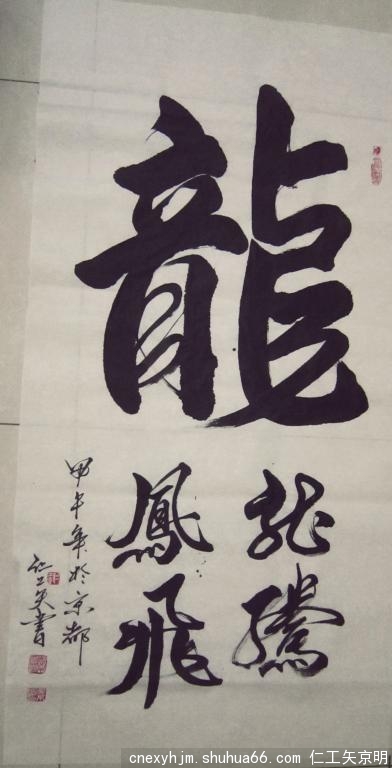 龍
龙騰
鳳飛
甲午年於京都
仁工矢書
cnexyhjm.shuhua66.com 仁工矢京明